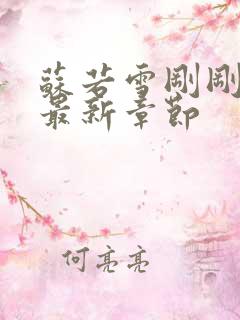 蘇若雪剛剛
最新章節
何亮亮